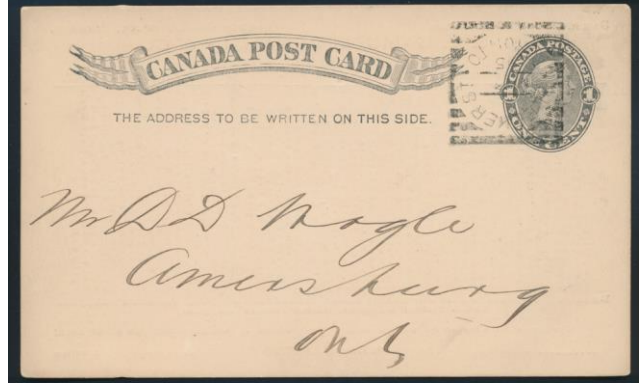 CANADA POST CARD
THE ADDRESS TO BE WRITTEN ON THIS SIDE.
CANADA POSTAGE
ONE CENT
Mr D D Nogle
Amersburg
Ont